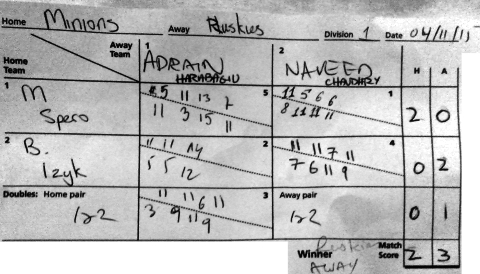 Home Minions Away Ruskies Division 1 Date 04/11/15
Away Team
Home Team
1 ADRAIN HARABAGIU
2 NAVEED CHAUDHRY
H A
1 M Spero
5 11 13 7 5
11 3 15 11
11 5 6 6 1
8 11 11 11
2 0
2 B. Izyk
11 11 14 2
5 5 12
11 11 7 11 4
7 6 11 9
0 2
Doubles: Home pair
1+2
11 11 6 11 3
3 9 11 9
Away pair
1+2
0 1
Winner AWAY
Match Score 2 3